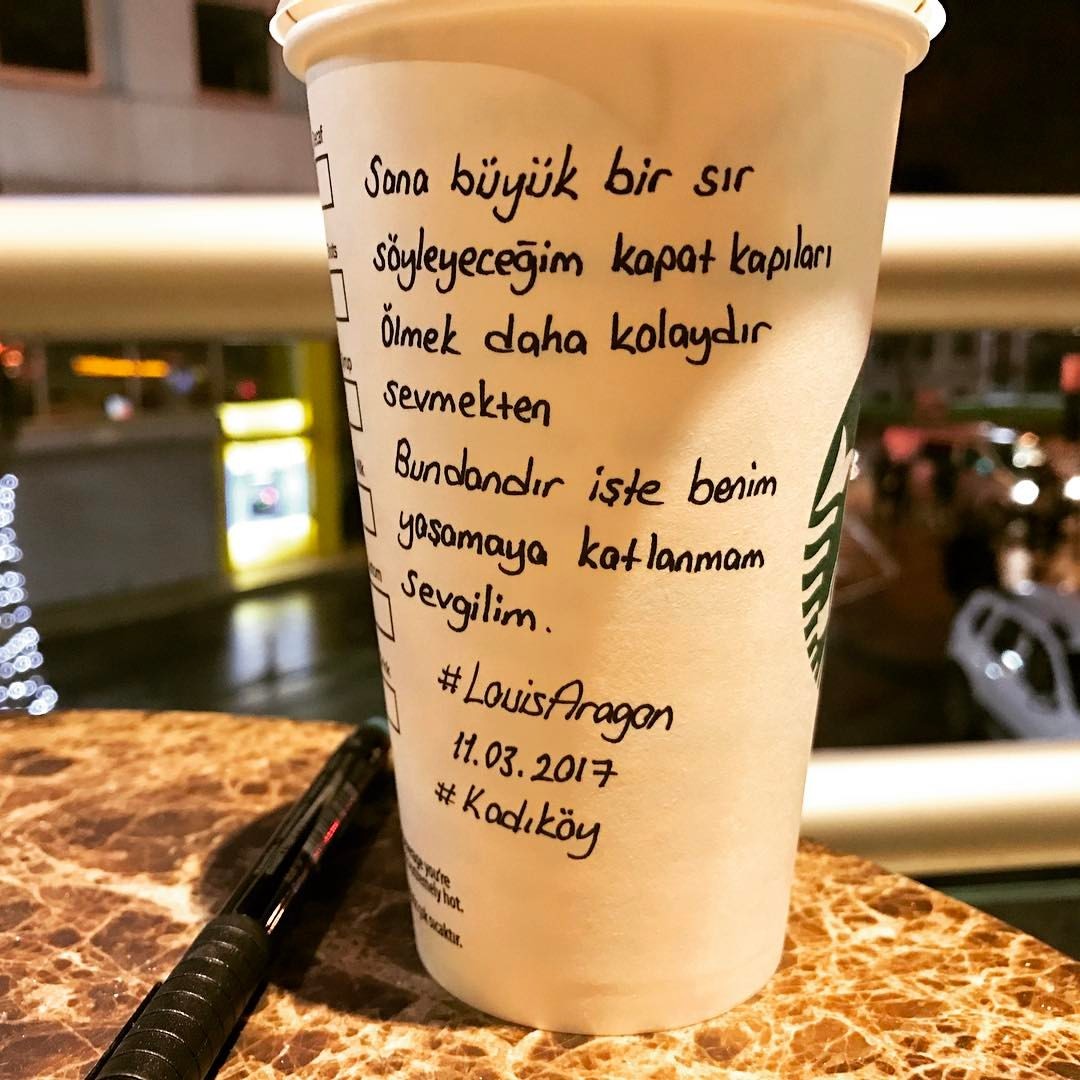 Sana büyük bir sır
söyleyeceğim kapat kapıları
Ölmek daha kolaydır
sevmekten
Bundandır işte benim
yaşamaya katlanmam
sevgilim.
#LouisAragon
11.03.2017
#Kadıköy
you're
hot.